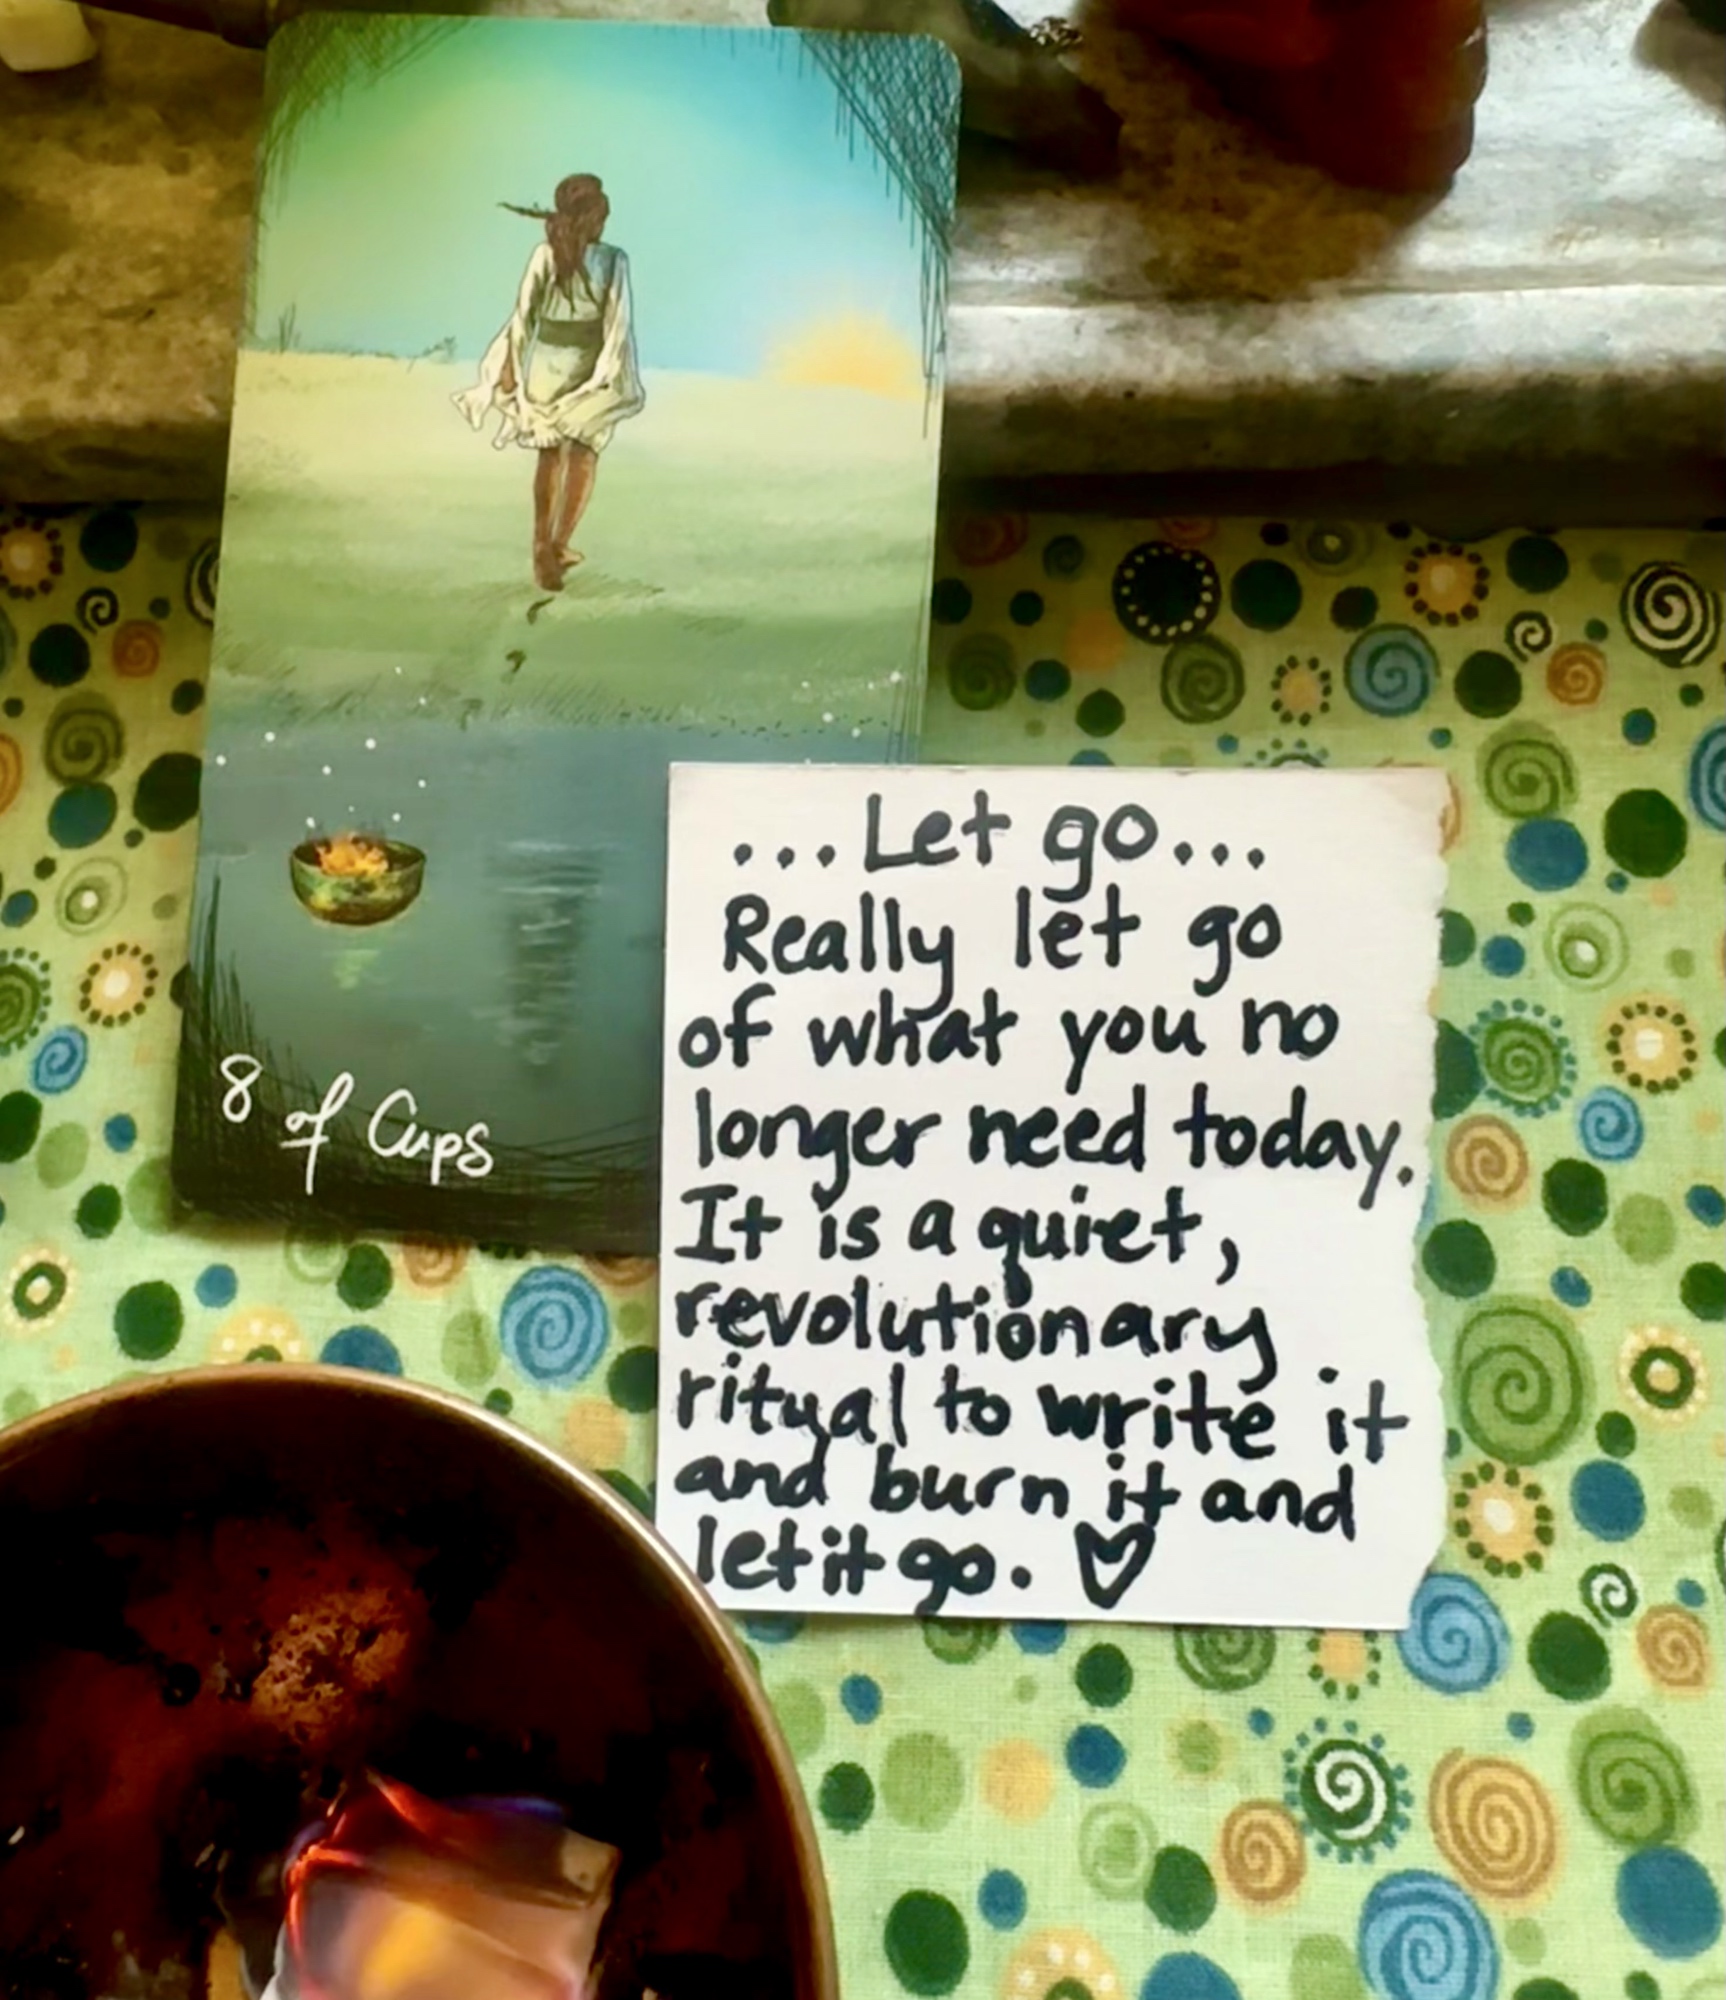 8 of Cups
...Let go...
Really let go
of what you no
longer need today.
It is a quiet,
revolutionary
ritual to write it
and burn it and
let it go. ♡